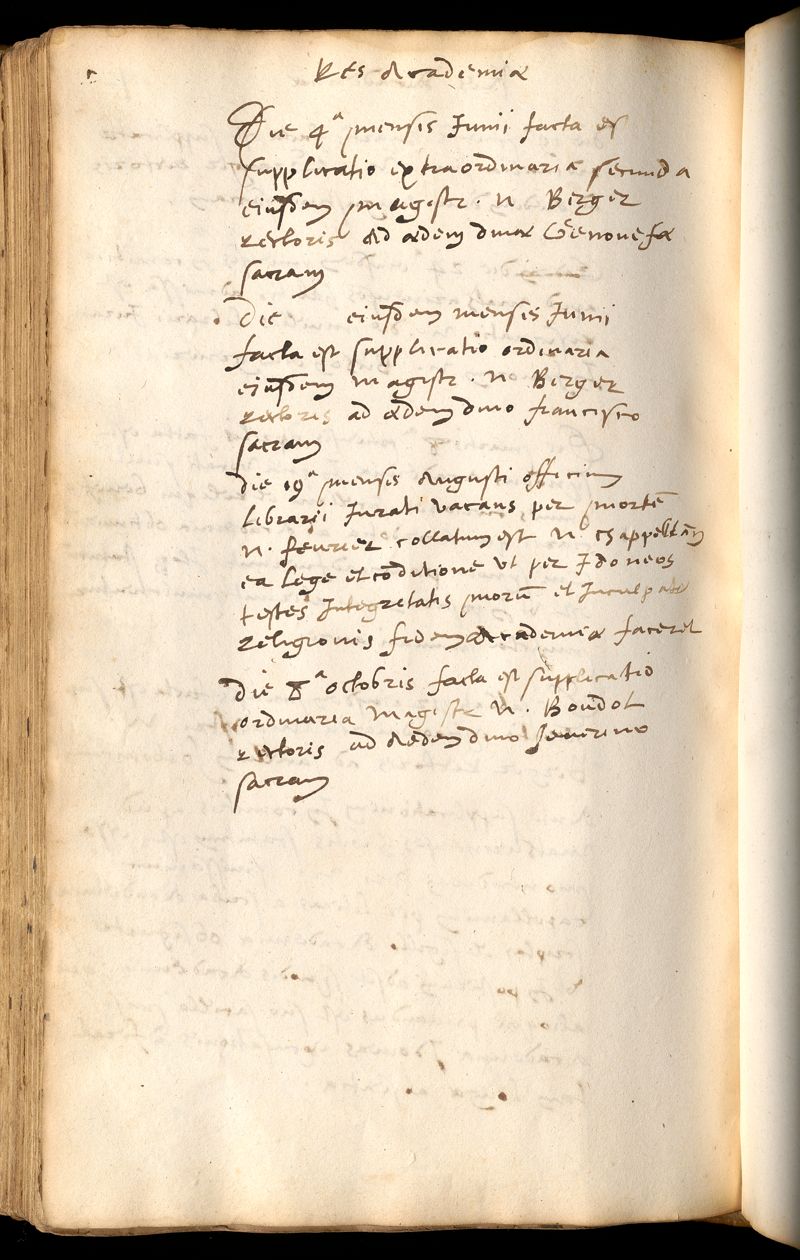 Res Academiæ
Die 4ª mensis Junii facta est
supplicatio extraordinaria secunda
eiusdem magistr. N Berger
rectoris ad ædem divæ Genovefæ
sacram
Die eiusdem mensis Junii
facta est supplicatio ordinaria
eiusdem magistr. N. Berger
rectoris ad ædem divo francisco
sacram
die 19ª mensis Augusti officium
librarii Jurati vacans per mortē
N. fevrier collatum est N. Chappellain
ea lege et coditione ut per Idoneos
testes Integretatis morū et Inculpatæ
religionis fidem Academiæ faceret
die 8ª octobris facta est supplicatio
ordinaria Magistr N. Boudot
rectoris ad ædem divo severino
sacram